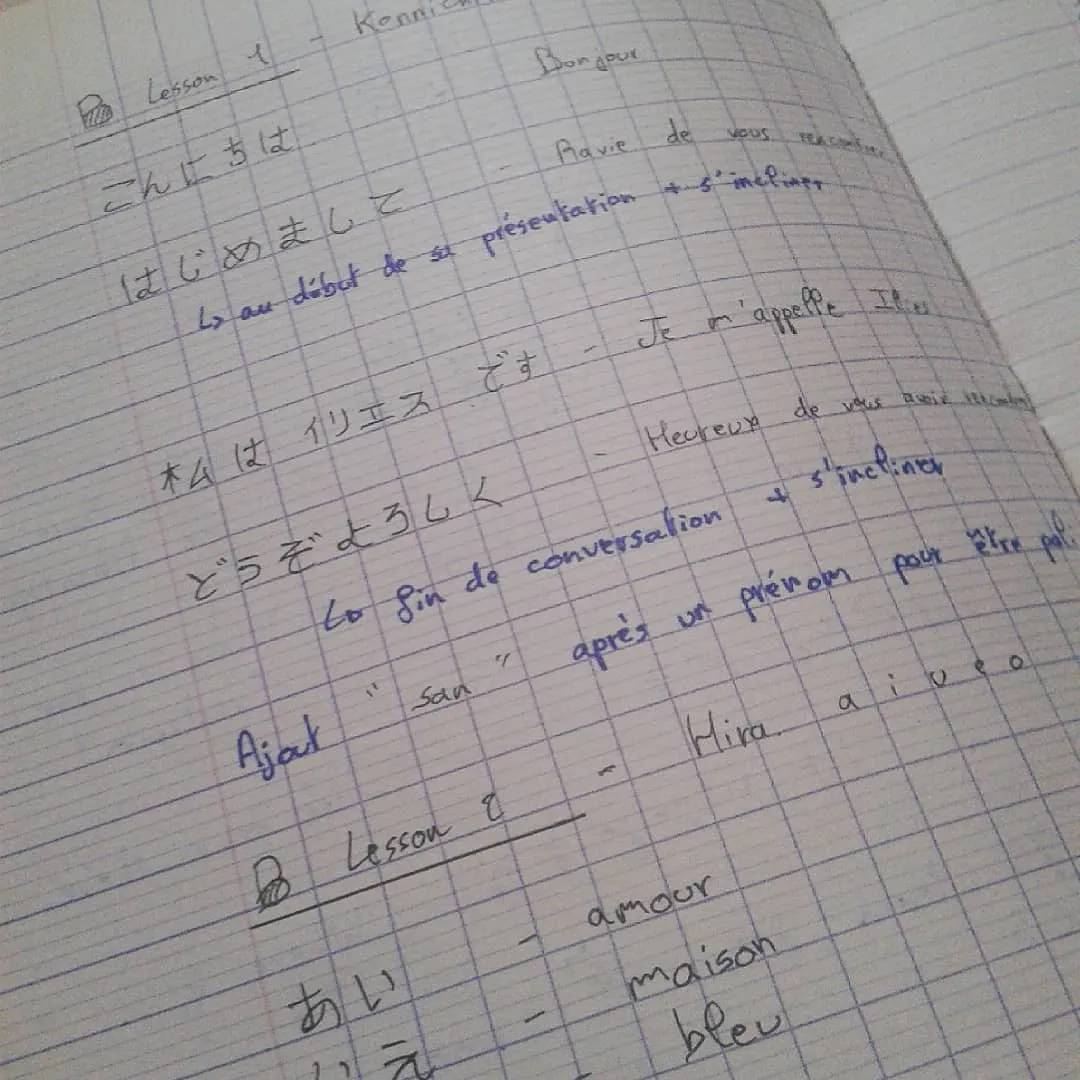 Lesson 1 -
こんにちは - Bonjour
はじめまして - Ravie de vous rencontrer
↳ au début de sa présentation + s'incliner
私は イリエス です - Je m'appelle
どうぞよろしく - Heureux de vous avoir rencontré
↳ fin de conversation + s'incliner
Ajout "san" après un prénom pour être poli
Lesson 2 - Hira. a i u e o
あい - amour
いえ - maison
bleu